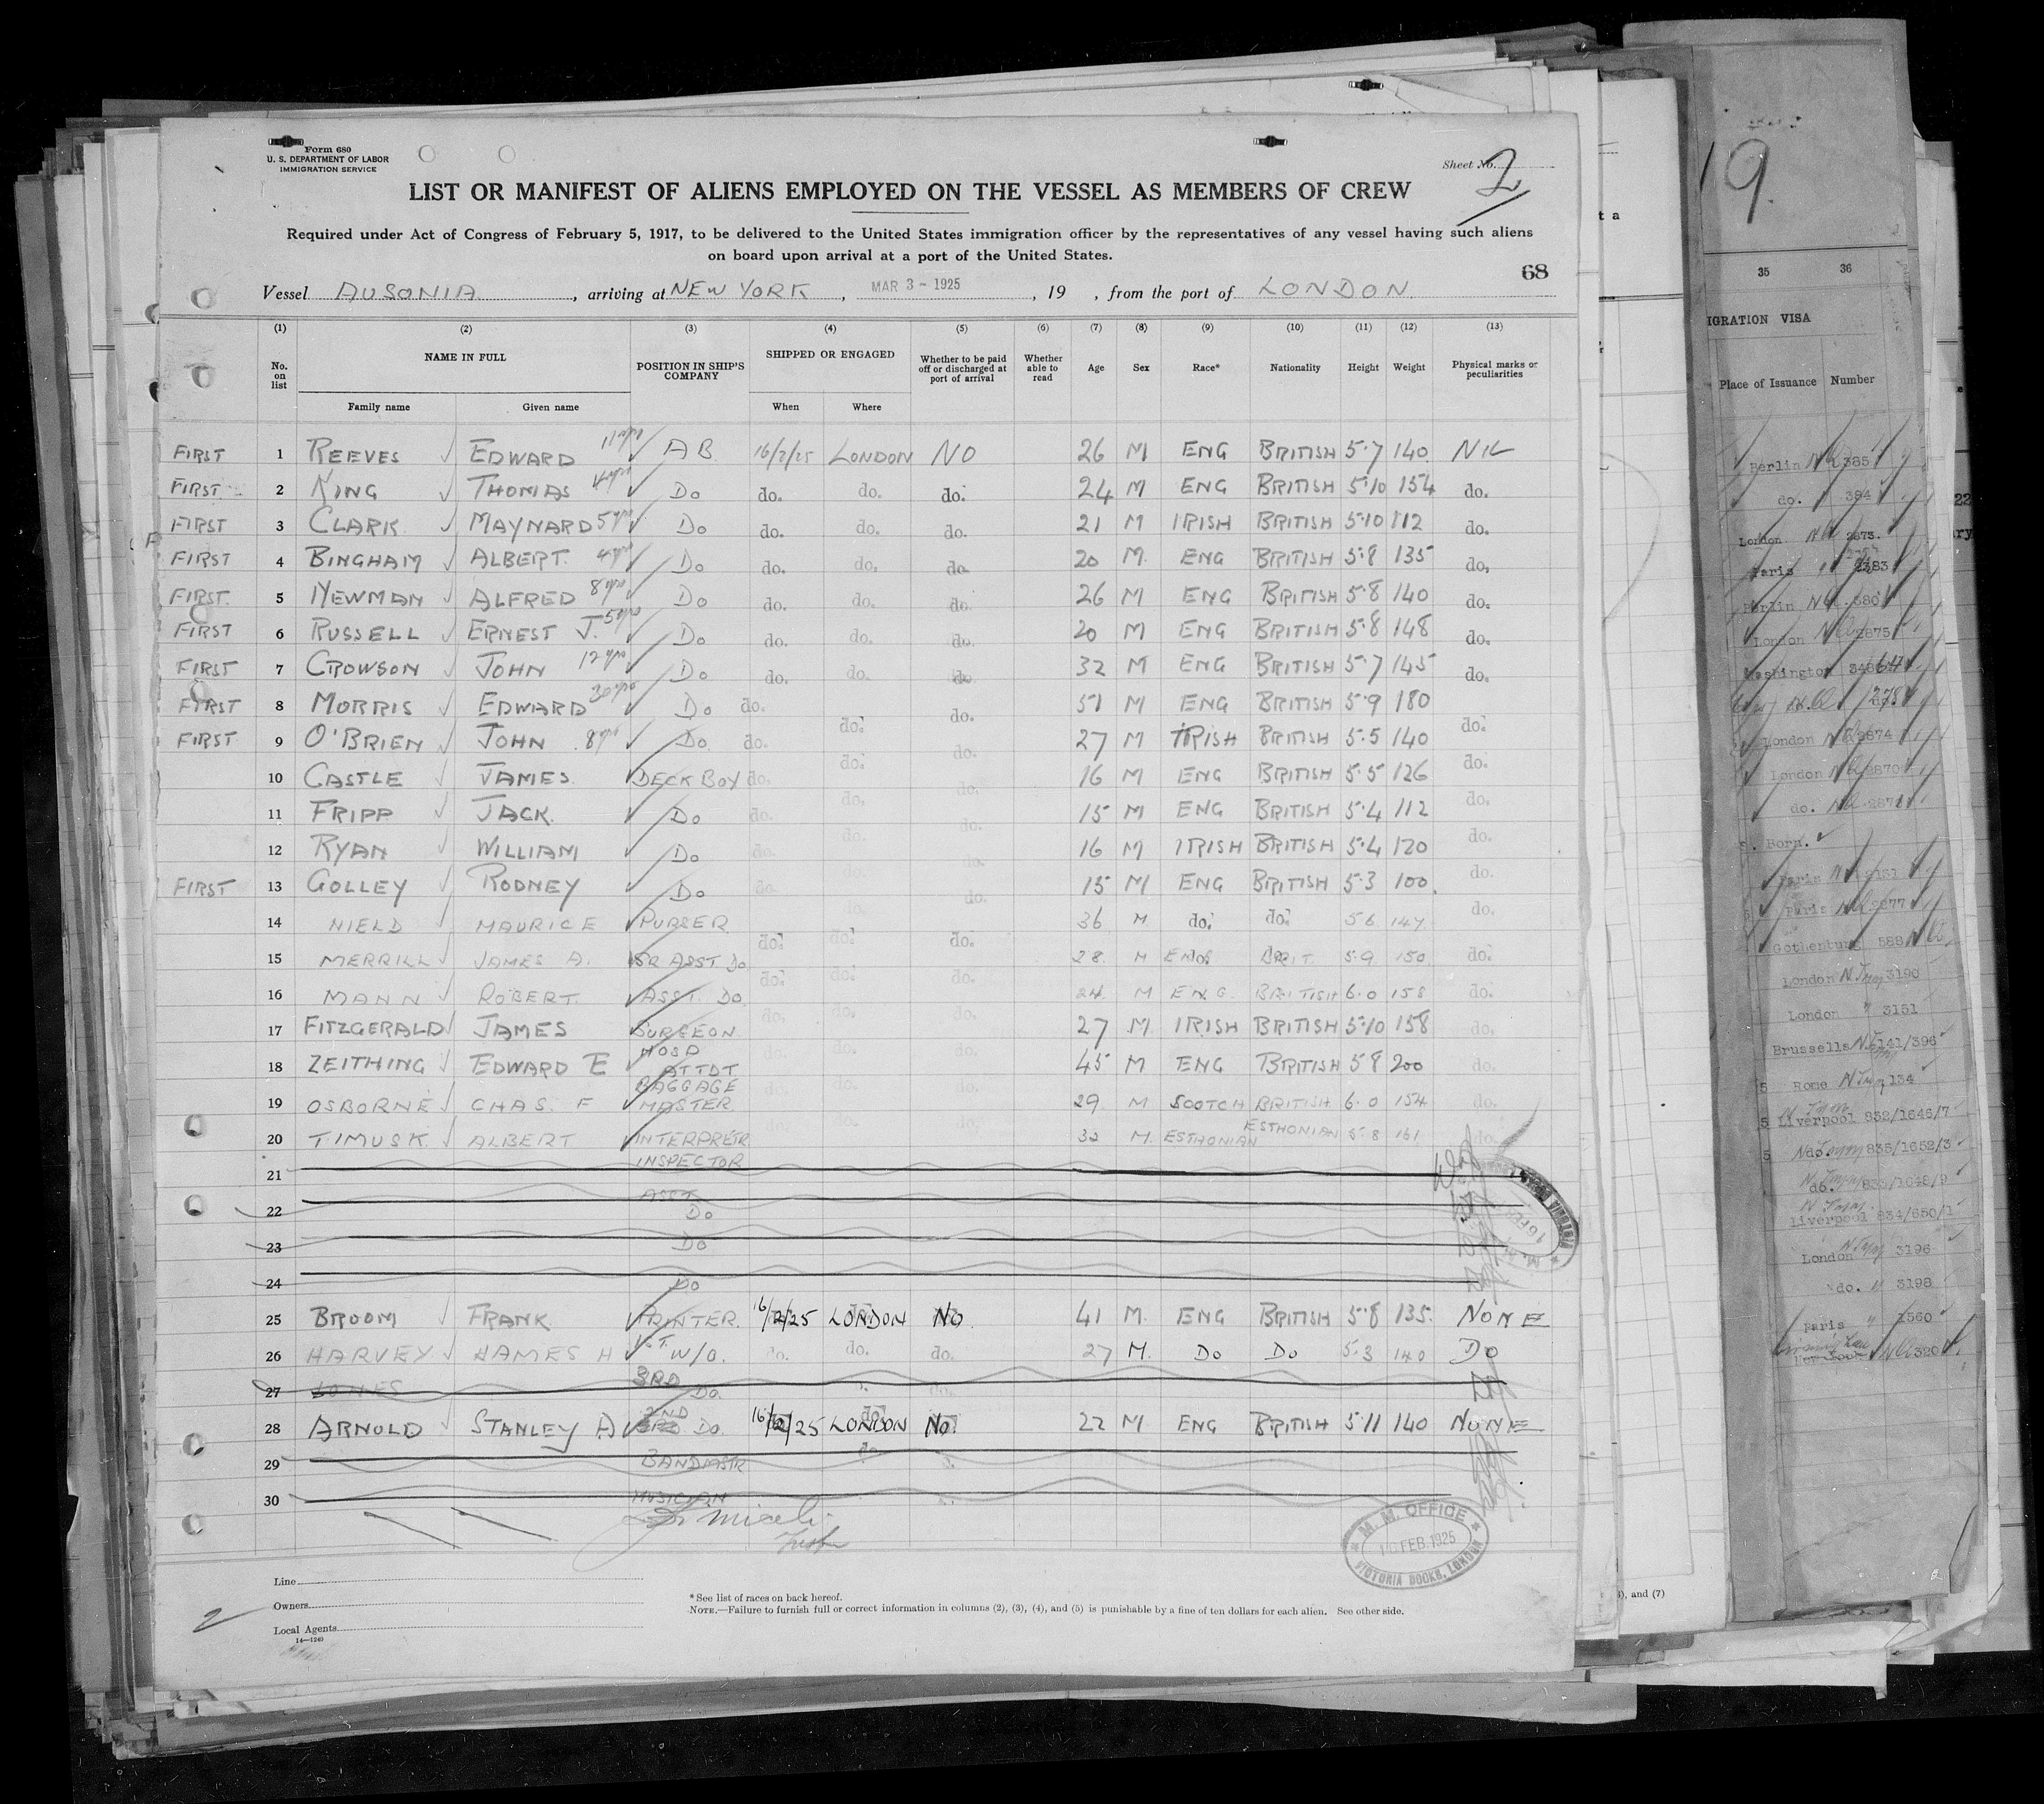 Form 680
U. S. DEPARTMENT OF LABOR
IMMIGRATION SERVICE
Sheet No. 2
LIST OR MANIFEST OF ALIENS EMPLOYED ON THE VESSEL AS MEMBERS OF CREW
Required under Act of Congress of February 5, 1917, to be delivered to the United States immigration officer by the representatives of any vessel having such aliens
on board upon arrival at a port of the United States.
68
Vessel AUSONIA, arriving at NEW YORK, MAR 3 - 1925, 19 , from the port of LONDON
(1) (2) (3) (4) (5) (6) (7) (8) (9) (10) (11) (12) (13)
No. on list NAME IN FULL POSITION IN SHIP'S COMPANY SHIPPED OR ENGAGED Whether to be paid off or discharged at port of arrival Whether able to read Age Sex Race* Nationality Height Weight Physical marks or peculiarities
Family name Given name When Where
FIRST 1 REEVES EDWARD AB 16/2/25 LONDON NO 26 M ENG BRITISH 5.7 140 NIL
FIRST 2 KING THOMAS Do do. do. do. 24 M ENG BRITISH 5.10 154 do.
FIRST 3 CLARK MAYNARD 5 yrs Do do. do. do. 21 M IRISH BRITISH 5.10 112 do.
FIRST 4 BINGHAM ALBERT 4 yrs Do do. do. do. 20 M ENG BRITISH 5.8 135 do.
FIRST 5 NEWMAN ALFRED 8 yrs Do do. do. do. 26 M ENG BRITISH 5.8 140 do.
FIRST 6 RUSSELL ERNEST J. 5 yrs Do do. do. do. 20 M ENG BRITISH 5.8 148 do.
FIRST 7 CROWSON JOHN 12 yrs Do do. do. do. 32 M ENG BRITISH 5.7 145 do.
FIRST 8 MORRIS EDWARD 30 yrs Do do. do. 51 M ENG BRITISH 5.9 180
FIRST 9 O'BRIEN JOHN 8 yrs Do do. do. do. 27 M IRISH BRITISH 5.5 140 do.
10 CASTLE JAMES DECK BOY do. do. do. 16 M ENG BRITISH 5.5 126 do.
11 FRIPP JACK Do do. do. do. 15 M ENG BRITISH 5.4 112 do.
12 RYAN WILLIAM Do do. do. do. 16 M IRISH BRITISH 5.4 120 do.
FIRST 13 GOLLEY RODNEY Do do. do. do. 15 M ENG BRITISH 5.3 100 do.
14 NIELD MAURICE PURSER do. 36 M do. do. 5 6 147 do.
15 MERRILL JAMES A. SR ASST. Do do. do. do. 28 M ENG. BRIT. 5.9 150 do.
16 MANN ROBERT ASST. DO do. do. do. 24 M ENG. BRITISH 6.0 158 do.
17 FITZGERALD JAMES SURGEON do. do. do. 27 M IRISH BRITISH 5.10 158 do.
18 ZEITHING EDWARD E HOSP ATTDT do. do. do. 45 M ENG BRITISH 5 8 200 do.
19 OSBORNE CHAS. F BAGGAGE MASTER do. do. do. 29 M SCOTCH BRITISH 6.0 154 do.
20 TIMUSK ALBERT INTERPRETR do. do. do. 32 M. ESTHONIAN ESTHONIAN 5.8 161 do.
21 INSPECTOR
22 ASST. Do
23 Do
24 Do
25 BROOM FRANK PRINTER. 16/2/25 LONDON NO 41 M. ENG BRITISH 5.8 135. NONE
26 HARVEY JAMES H 1ST. W/O. do. do. do. 27 M. Do Do 5.3 140 Do
27 3RD Do.
28 ARNOLD STANLEY A 2ND Do. 16/2/25 LONDON No. 22 M. ENG BRITISH 5.11 140 NONE
29 BANDMSTR
30 MUSICIAN
M. M. OFFICE
16 FEB. 1925
VICTORIA DOCKS, LONDON
Line
Owners
Local Agents
14—1240
2
*See list of races on back hereof.
NOTE.—Failure to furnish full or correct information in columns (2), (3), (4), and (5) is punishable by a fine of ten dollars for each alien. See other side.
), and (7)
19.
35 36
IGRATION VISA
Place of Issuance Number
Berlin 385
do. 384
London 2873.
Paris 2383
Berlin 380
London 2875
Washington
London 2874
London 2870
do. 2871
Born.
Paris
Paris 2877
Gothenburg 588
London 3190
London " 3151
Brussels 141/396
Rome 134
Liverpool 832/1646/7
do 835/1652/3
do.
Liverpool 834/650/1
London 3196
do. " 3198
Paris " 1560
New York 320